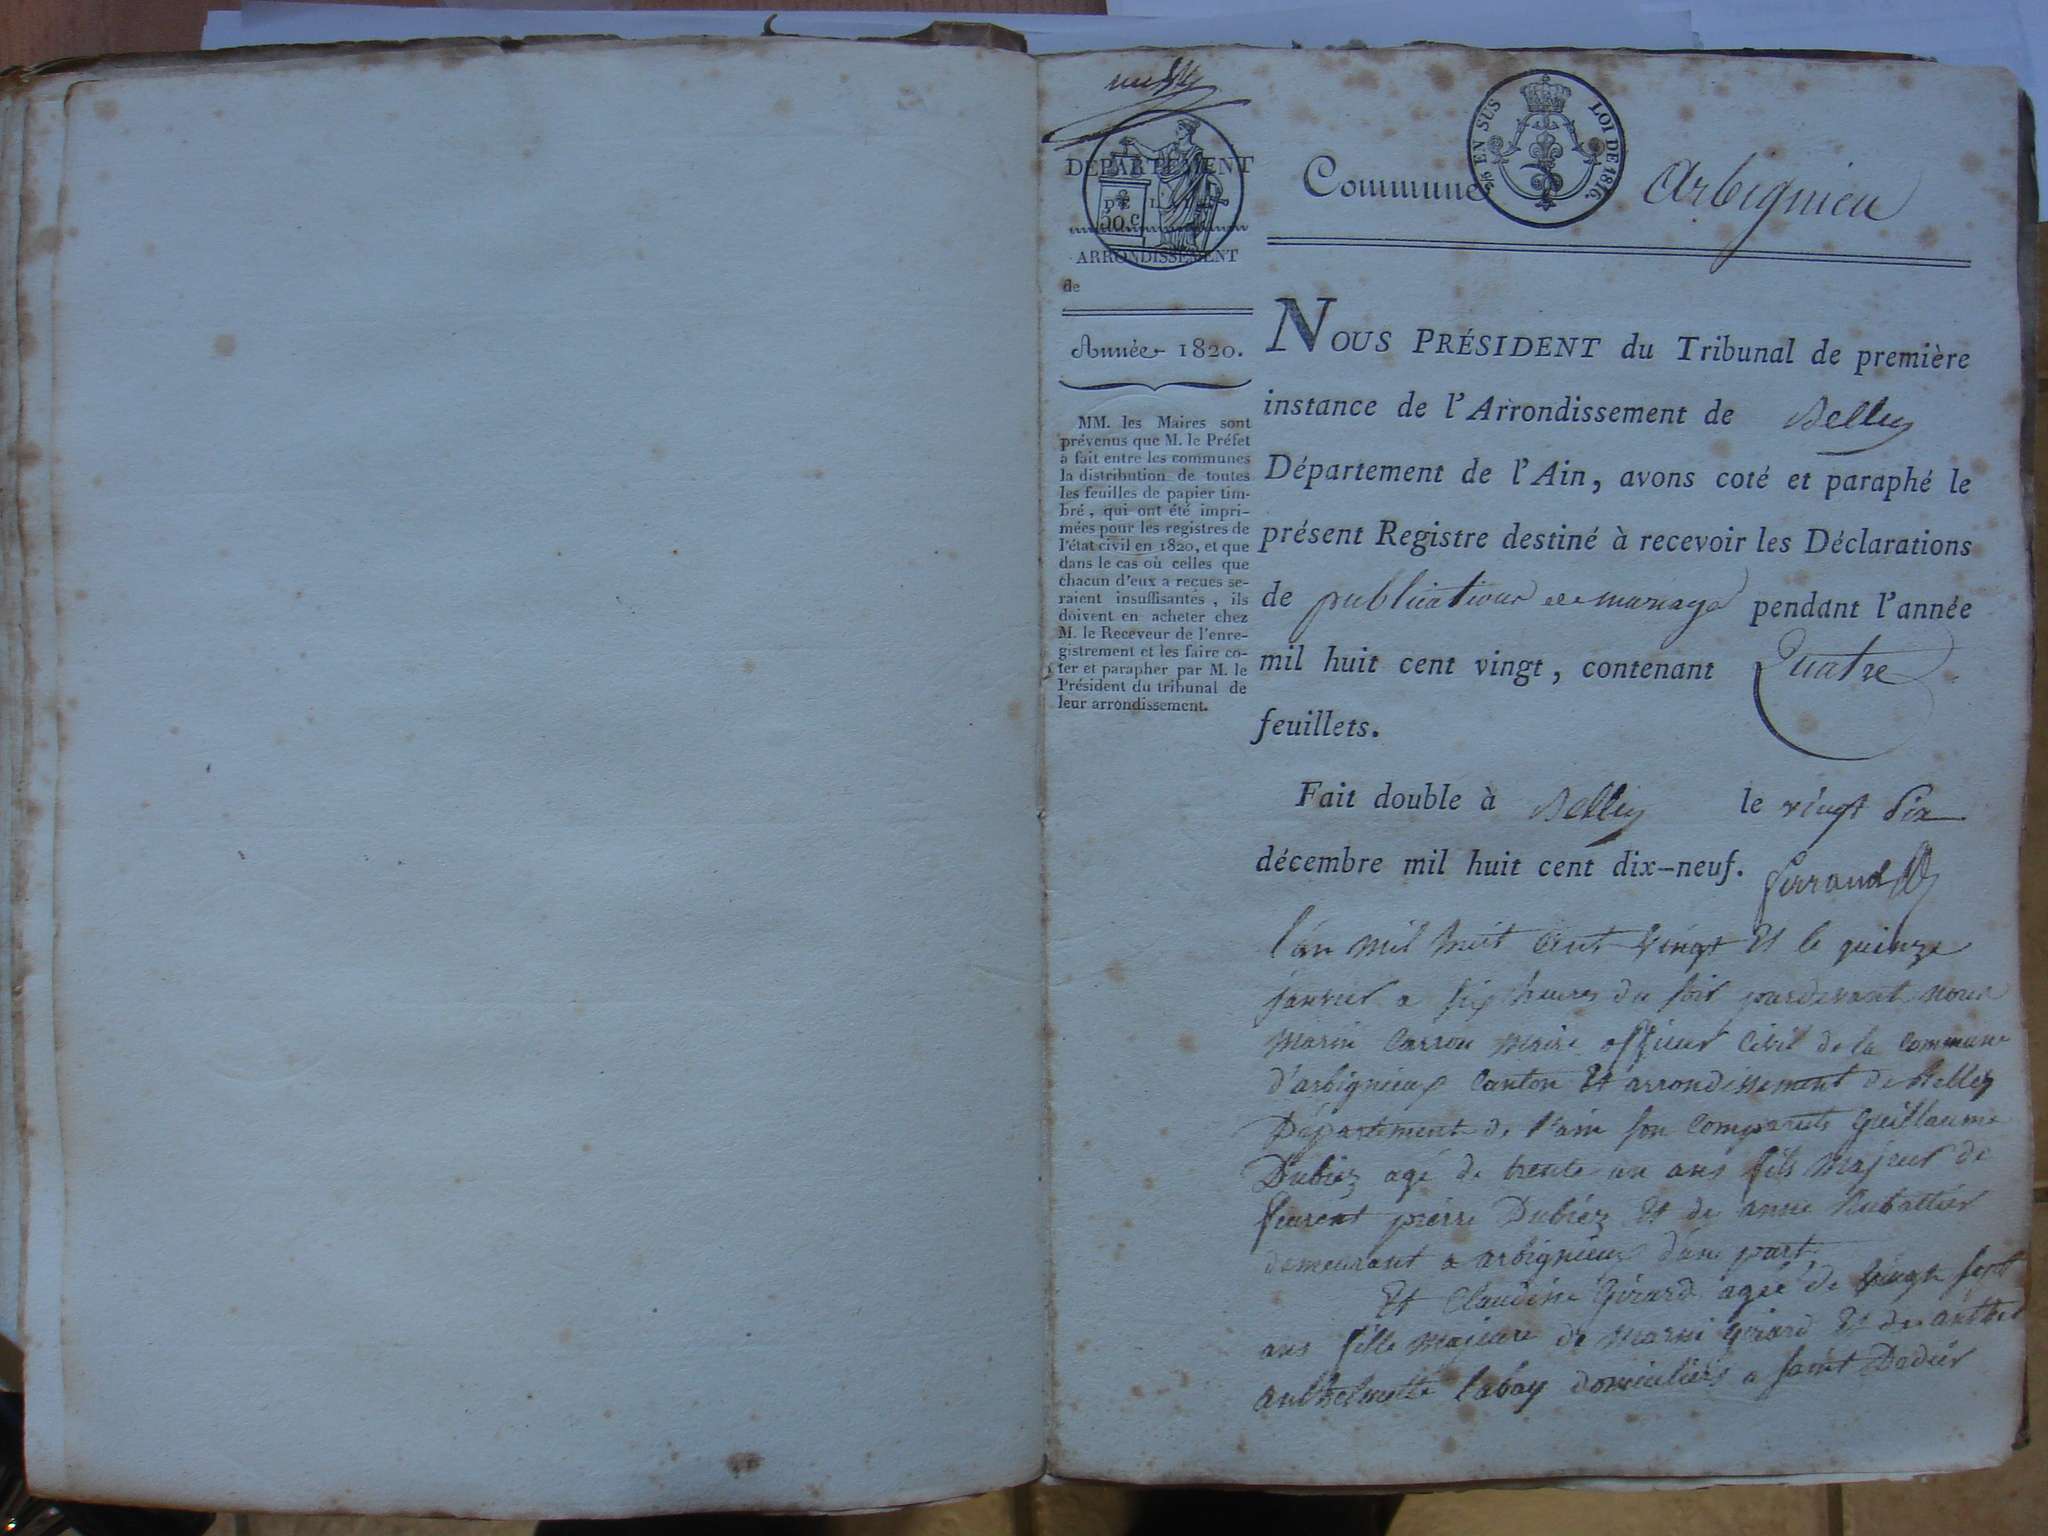 DÉPARTEMENT
DE L'AIN
50 C
ARRONDISSEMENT
de
Année 1820.
MM. les Maires sont
prévenus que M. le Préfet
a fait entre les communes
la distribution de toutes
les feuilles de papier tim-
bré, qui ont été impri-
mées pour les registres de
l'état civil en 1820, et que
dans le cas où celles que
chacun d'eux a reçues se-
raient insuffisantes, ils
doivent en acheter chez
M. le Receveur de l'enre-
gistrement et les faire co-
ter et parapher par M. le
Président du tribunal de
leur arrondissement.
EN SUS LOI DE 1816.
Commune Arbignieu
NOUS PRÉSIDENT du Tribunal de première
instance de l'Arrondissement de Belley
Département de l'Ain, avons coté et paraphé le
présent Registre destiné à recevoir les Déclarations
de publications de mariage pendant l'année
mil huit cent vingt, contenant Quatre
feuillets.
Fait double à Belley le vingt Six
décembre mil huit cent dix-neuf. Ferrand
l'an mil huit Cent vingt Et le quinze
janvier a six heures du soir pardevant nous
Marin Carron Maire officier Civil de la Commune
d'arbignieux Canton Et arrondissement de Belley
Département de l'ain son Comparuts Guillaume
Dubiez agé de trente un ans fils Majeur de
pierre Dubiez Et de anne
demeurant a arbignieux d'une part
Et Claudine Girard agée de vingt sept
ans fille Majeure de Marin Girard Et de
anthelmette labay domiciliés a saint Dodier